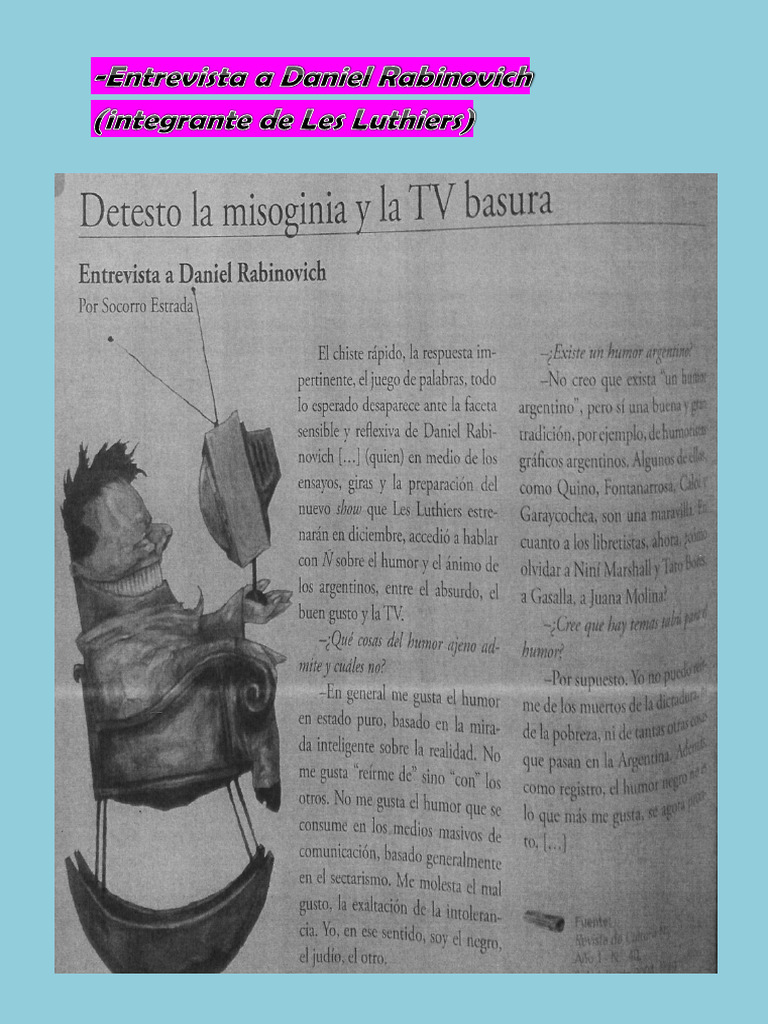 -Entrevista a Daniel Rabinovich
(integrante de Les Luthiers)
Detesto la misoginia y la TV basura
Entrevista a Daniel Rabinovich
Por Socorro Estrada
El chiste rápido, la respuesta im-
pertinente, el juego de palabras, todo
lo esperado desaparece ante la faceta
sensible y reflexiva de Daniel Rabi-
novich [...] (quien) en medio de los
ensayos, giras y la preparación del
nuevo show que Les Luthiers estre-
narán en diciembre, accedió a hablar
con Ñ sobre el humor y el ánimo de
los argentinos, entre el absurdo, el
buen gusto y la TV.
–¿Qué cosas del humor ajeno ad-
mite y cuáles no?
–En general me gusta el humor
en estado puro, basado en la mira-
da inteligente sobre la realidad. No
me gusta “reírme de” sino “con” los
otros. No me gusta el humor que se
consume en los medios masivos de
comunicación, basado generalmente
en el sectarismo. Me molesta el mal
gusto, la exaltación de la intoleran-
cia. Yo, en ese sentido, soy el negro,
el judío, el otro.
–¿Existe un humor argentino?
–No creo que exista “un humor
argentino”, pero sí una buena y gran
tradición, por ejemplo, de humoristas
gráficos argentinos. Algunos de ellos,
como Quino, Fontanarrosa, Caloi y
Garaycochea, son una maravilla. En
cuanto a los libretistas, ahora, ¿cómo
olvidar a Niní Marshall y Tato Bores,
a Gasalla, a Juana Molina?
–¿Cree que hay temas tabú para el
humor?
–Por supuesto. Yo no puedo reír-
me de los muertos de la dictadura,
de la pobreza, ni de tantas otras cosas
que pasan en la Argentina. Además,
como registro, el humor negro no es
lo que más me gusta, se agota pron-
to. [...]
Fuente:
Revista de Cultura Ñ,
Año 1 - N°